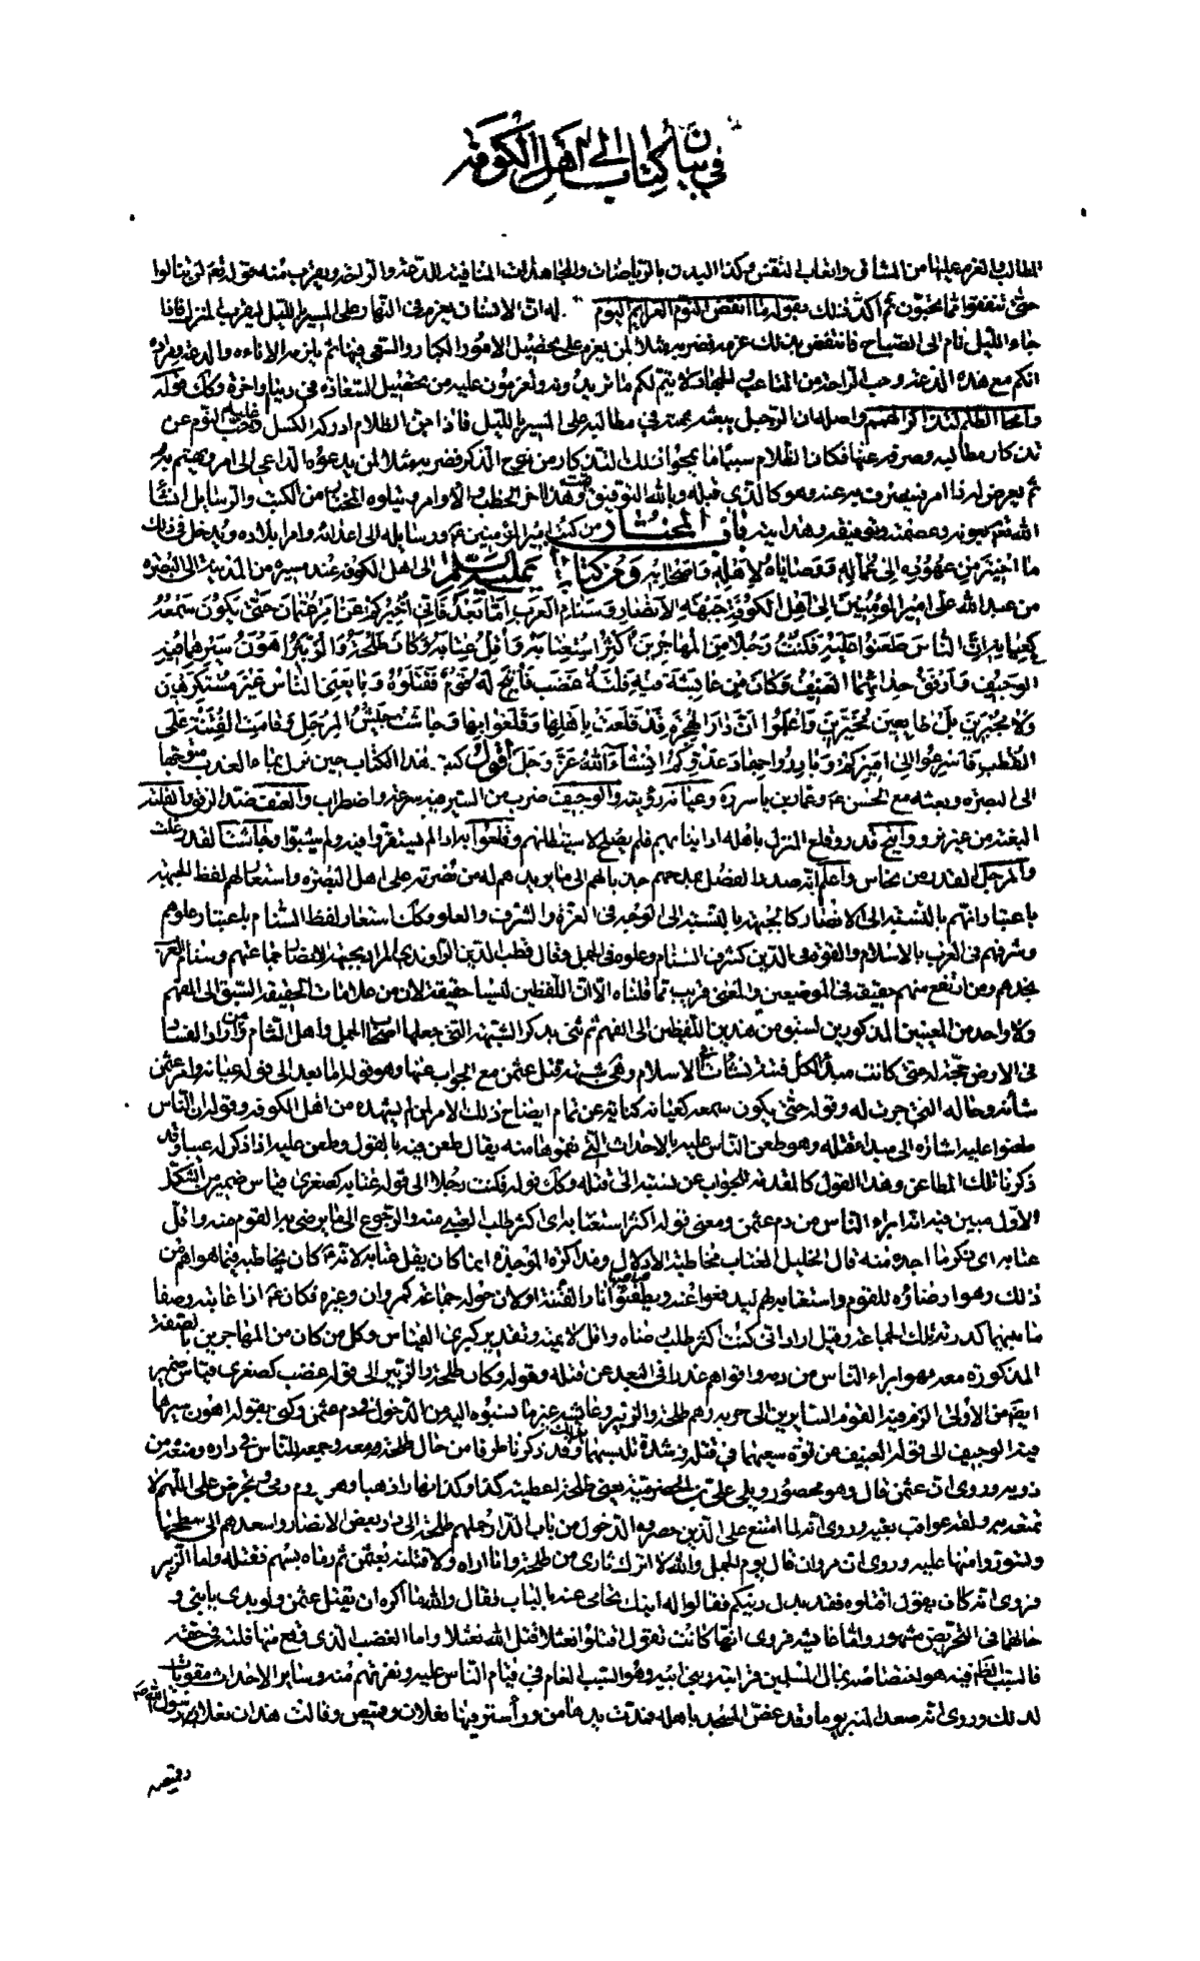 في بيان كتاب إلى أهل الكوفة
المطالب العزم عليها من المشاق واتعاب النفس وكذا البدن بالرياضات والمجاهدات المنافية للدعة والراحة ويقرب منه قوله تعالى لن تنالوا
حتى تنفقوا مما تحبون ثم أكد ذلك بقوله ما انقض النوم لعزايم اليوم له ان الانسان يعزم في النهار على المسير بالليل ليقرب المنزل فاذا
جاء الليل نام الى الصباح فانتقض بذلك عزمه فضربه مثلا لمن يعزم على تحصيل الامور الكبار والسعى فيها ثم يلزم الاناءه والدعة
انكم مع هذه الدعة وحب الراحة من المتاعب الجهاد لا يتم لكم ما تريدونه وتعزمون عليه من تحصيل السعادة في دنيا وآخرة وكذلك قوله
وامحا الظلم لتذاكير الهمم واصله ان الرجل يبعثه همته في مطالبه على المسير بالليل فاذا جن الظلام ادركه الكسل وغلبه حب النوم عن
تذكار مطالبه وصرفه عنها فكان الظلام سببا ما لمحو ذلك التذكار من لوح الذكر فضربه مثلا لمن يدعوه الداعى الى امر ويهتم به
ثم يعرض له ادنى امر فيصرف به عنه وهو كالذي قبله وبالله التوفيق وهذا آخر الخطب والاوامر ويتلوه المختار من الكتب والرسايل انشأ
الله تعالى بعونه وعصمته وتوفيقه وهدايته باب المختار من كتب امير المؤمنين ع ورسايله الى اعدائه وامراء بلاده ويدخل في ذلك
ما اختير من عهوده الى عماله ووصاياه لاهله واصحابه ومن كتاب له عليه السلم الى اهل الكوفة عند مسيره من المدينة الى البصره
من عبد الله علي امير المؤمنين الى اهل الكوفة جبهة الانصار وسنام العرب اما بعد فاني اخبركم عن امر عثمان حتى يكون سمعه
كعيانه ان الناس طعنوا عليه فكنت رجلا من المهاجرين اكثر استعتابه واقل عتابه وكان طلحة والزبير اهون سيرهما فيه
الوجيف وارفق حدائهما العنيف وكان من عائشة فيه فلتة غضب فاتيح له قوم فقتلوه وبايعني الناس غير مستكرهين
ولا مجبرين بل طايعين مخيرين واعلموا ان دار الهجرة قد قلعت باهلها وقلعوا بها وجاشت جيش المرجل وقامت الفتنة على
القطب فاسرعوا الى اميركم وبادروا جهاد عدوكم انشاء الله عز وجل اقول كتب هذا الكتاب حين نزل بماء العذيب متوجها
الى البصره وبعثه مع الحسن ع وعمار بن ياسر ره وعيانه رؤيته والوجيف ضرب من السير فيه سرعة واضطراب والعنف ضد الرفق والفلته
البغتة من غير ترو واتيح قدر وقلع المنزل باهله اذا نبا بهم فلم يصلح لاستيطانهم وقلعوا به اذا لم يستقروا فيه ولم يثبتوا وجاشت القدر غلت
والمرجل القدر من نحاس واعلم انه صدر الفصل بمدحهم جذبا لهم الى ما يريدهم له من نصرته على اهل البصره واستعار لهم لفظ الجبهة
باعتبار انهم بالنسبة الى الانصار كالجبهة بالنسبة الى الوجه في العزة والشرف والعلو وكذا استعار لفظ السنام باعتبار علوهم
وشرفهم في العرب بالاسلام والقوة في الدين كشرف السنام وعلوه في الجمل وقال قطب الدين الراوندي المراد بجبهة الانصار جماعتهم وسنام العرب
مجدهم ومن ارتفع منهم حقيقة في الموضعين والمعنى قريب مما قلناه الا ان اللفظين ليسا حقيقة لان من علامات الحقيقة السبق الى الفهم
ولا واحد من المعنيين المذكورين يسبق من هذين اللفظين الى الفهم ثم ثنى بذكر الشبهة التي جعلها اصحاب الجمل واهل الشام ومن اراد الفساد
في الارض حجة له حتى كانت مبدأ لكل فتنة نشأت في الاسلام وهي شبهة قتل عثمن مع الجواب عنها وهو قوله اما بعد الى قوله عيانه وامر عثمن
شأنه وحاله التي جرت له وقوله حتى يكون سمعه كعيانه كناية عن تمام ايضاح ذلك الامر لمن لم يشهده من اهل الكوفه وقوله ان الناس
طعنوا عليه اشارة الى مبدأ قتله وهو طعن الناس عليه بالاحداث التي نقموها منه يقال طعن فيه بالقول وطعن عليه اذا ذكر له عيبا وقد
ذكرنا تلك المطاعن وهذا القول كالمقدمة للجواب عن نسبته الى قتله وكذا قوله فكنت رجلا الى قوله عتابه كصغرى قياس ضمير من الشكل
الاول مبين فيه انه ابراء الناس من دم عثمن ومعنى قوله اكثر استعتابه اى اكثر طلب العتبى منه والرجوع الى ما يرضى به القوم منه واقل
عتابه اى ... ما اجده منه قال الخليل العتاب مخاطبة الادلال ومذاكرة الموجدة انما كان يقل عتابه لانه ع كان يخاطبه فيما هو اهم من
ذلك وهو ارضاؤه للقوم واستعتابه لهم ليدفعوا عنه ويطفئوا نار الفتنة او لان حوله جماعة كمروان وغيره فكان ع اذا عاتبه وصفا
ما بينهما كدر ته تلك الجماعة وقيل اراد انى كنت اكثر طلب رضاه واقل لائمة وتقدير كبرى القياس وكل من كان من المهاجرين بالصفة
المذكورة معه فهو ابراء الناس من دمه واقواهم عذرا في البعد عن قتله وقوله وكان طلحة والزبير الى قوله غضب كصغرى قياس ضمير
ايضا من الاول الزم فيه القوم السايرين الى حربه وهم طلحة والزبير وعايشه عيبها نسبوه اليه من الدخول في دم عثمن وكنى بقوله اهون سيرهما
فيه الوجيف الى قوله العنيف عن قوة سعيهما في قتله وشدة تلبسهما بذلك وقد ذكرنا طرفا من حال طلحة ومعه وجمعه للناس في داره ومنعه من
ذويه وروى ان عثمن قال وهو محصور ويلي على ابن الحضرمية يعني طلحة اعطيته كذا وكذا بهارا ذهبا وهو يروم دمى ويحرض على اللهم لا
تمتعه به ولقه عواقب بغيه وروى انه لما امتنع على الذين حصروه الدخول من باب الدار حملهم طلحة الى دار بعض الانصار واصعدهم الى سطحها
وتسوروا منها عليه وروى ان مروان قال يوم الجمل والله لا اترك ثارى من طلحة وانا اراه ولاقتلنه بعثمن ثم رماه بسهم فقتله واما الزبير
فروى انه كان يقول اقتلوه فقد بدل دينكم فقالوا له ابنك يحامى عنه بالباب فقال والله ما اكره ان يقتل عثمن ولو بدئ بابنى و
حالهما في التحريض مشهور واما عايشه فروى انها كانت تقول اقتلوا نعثلا قتل الله نعثلا واما الغضب الذي وقع منها فلتة في حقه
فالسبب الظاهر فيه هو اختصاصه بمال المسلمين قرابته وبني ابيه وهو السبب العام في قيام الناس عليه ونفرتهم منه وساير الاحداث مقويات
لذلك وروى انه صعد المنبر يوما وقد غص المسجد باهله فمدت يدها من وراء ستر فيها نعلان وقميص وقالت هذان نعلا رسول الله ص
وقميصه